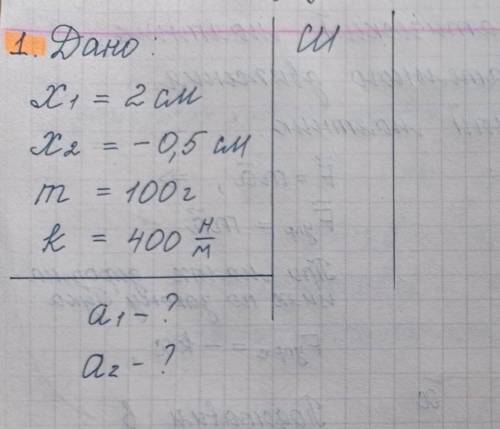 1. Дано: СИ
x₁ = 2 см
x₂ = -0,5 см
m = 100 г
k = 400 Н/м
a₁ - ?
a₂ - ?